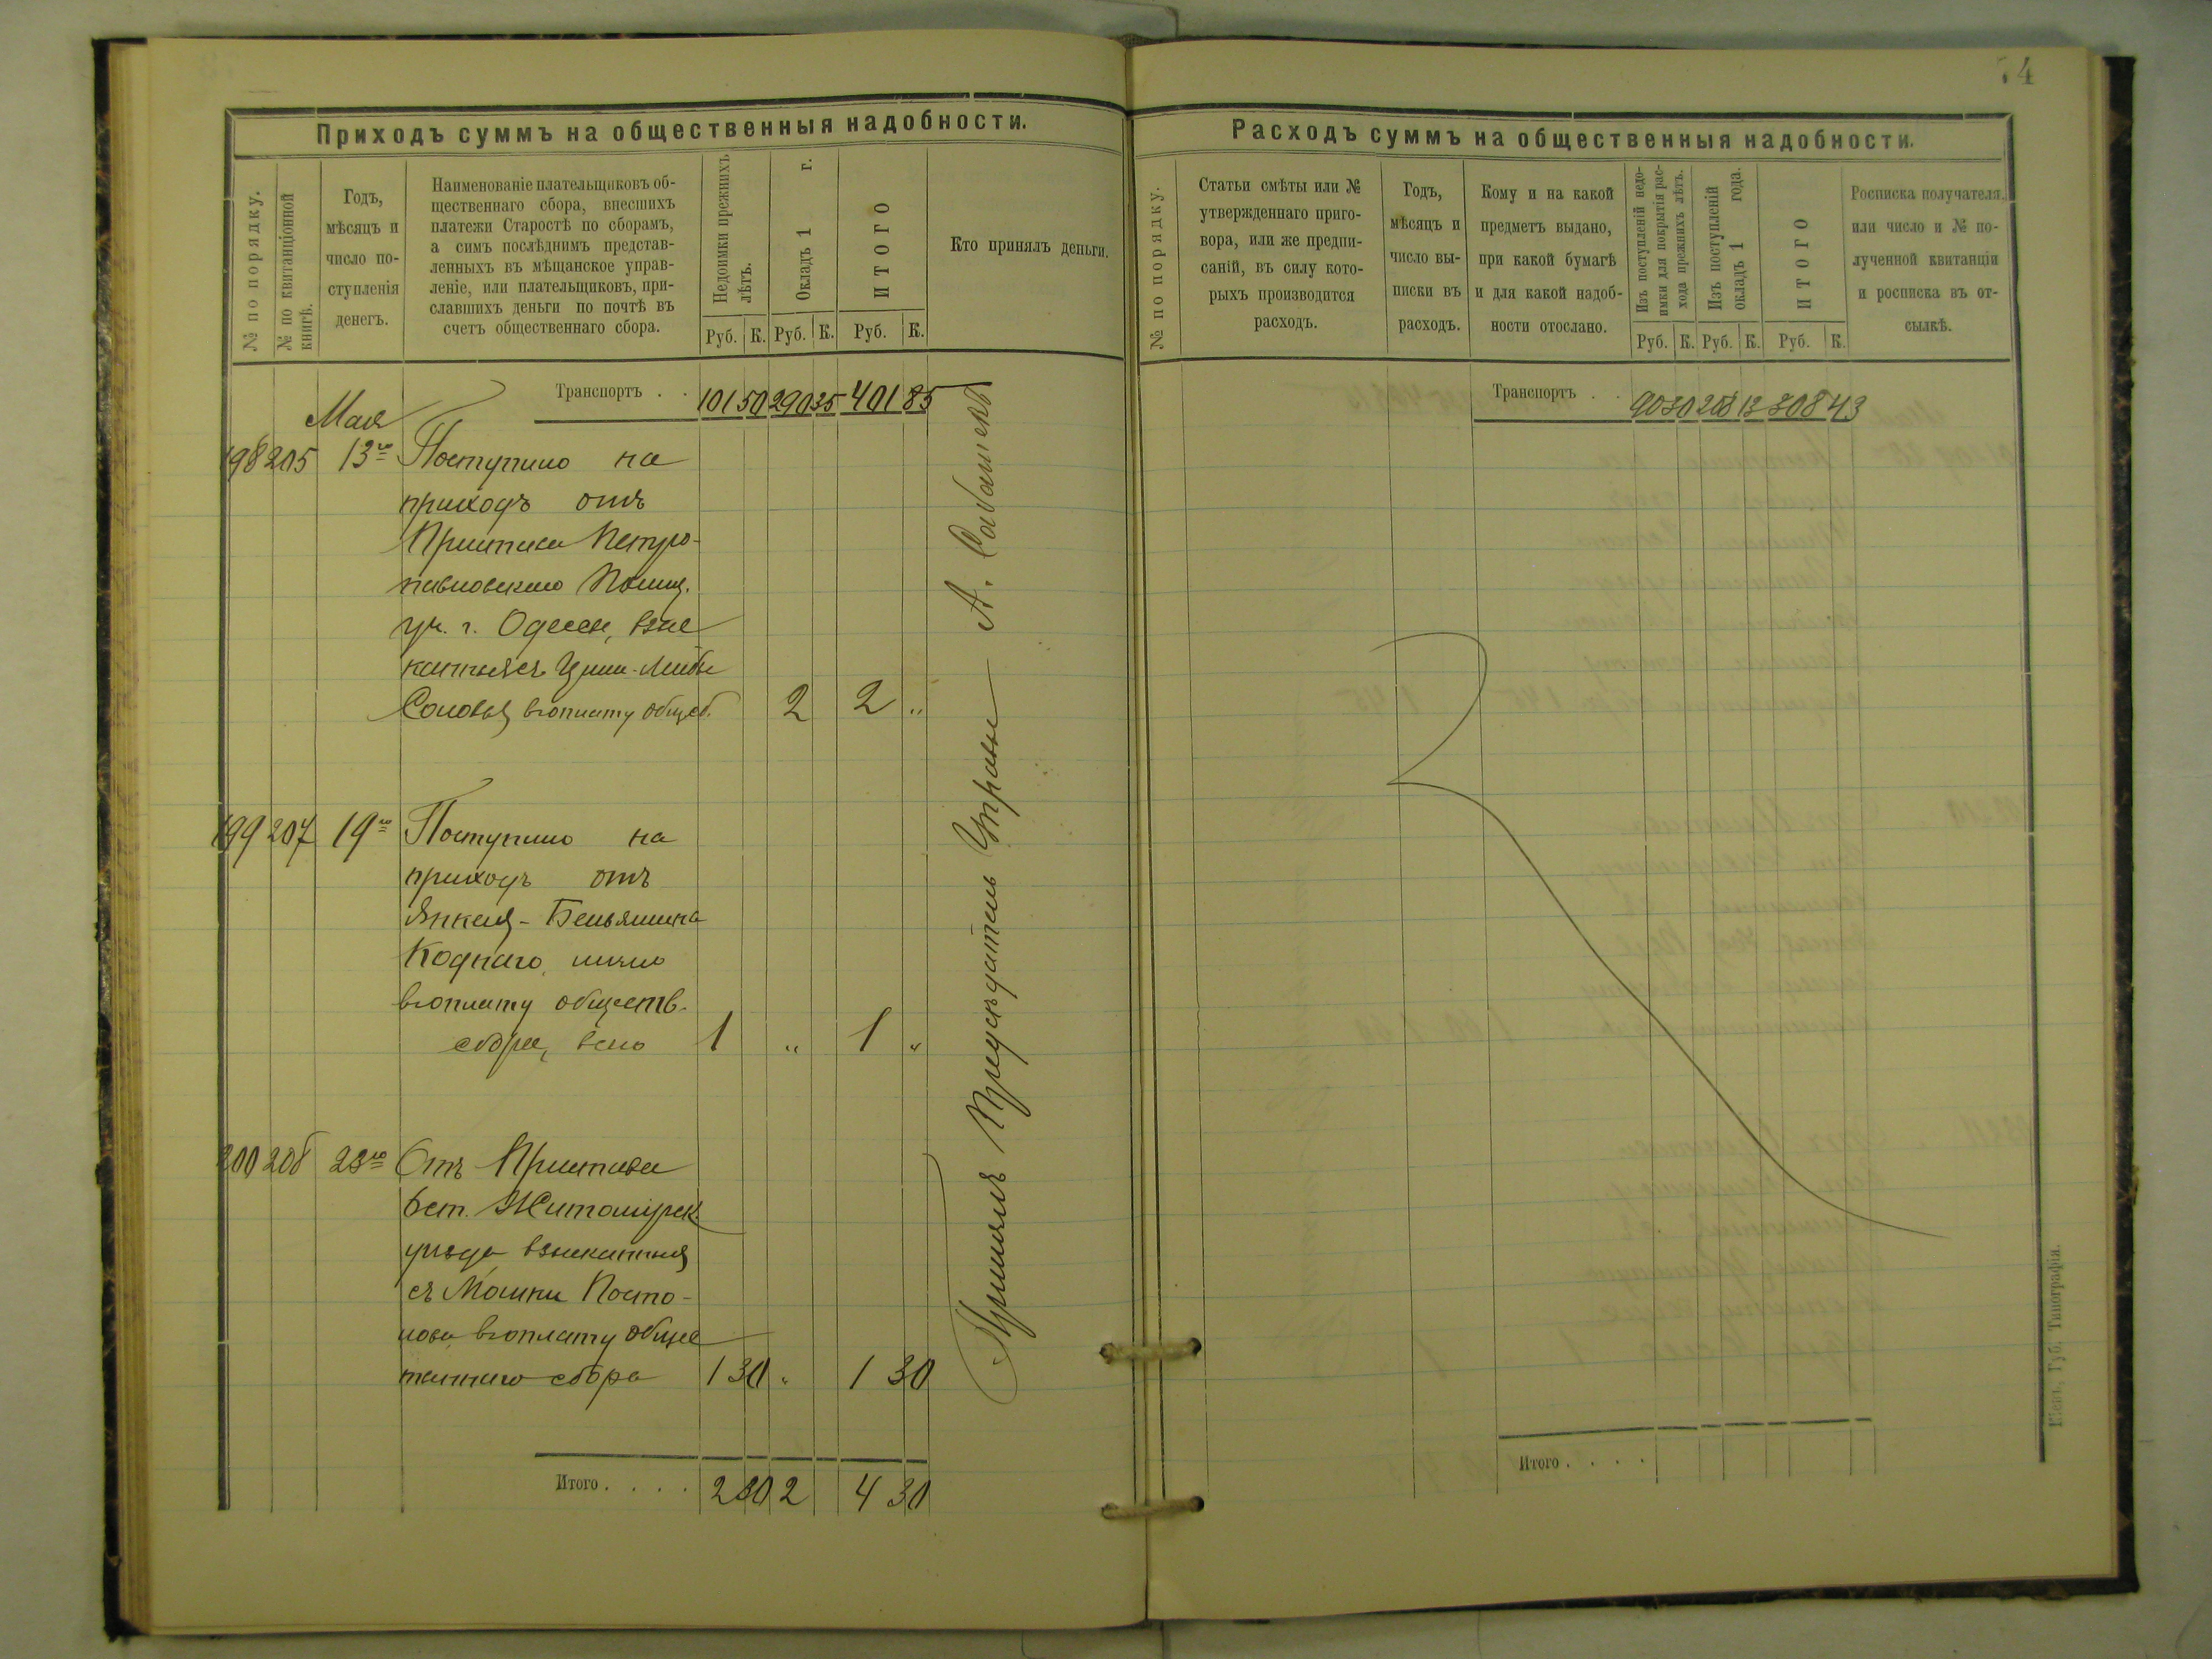 Приходъ суммъ на общественныя надобности.
№ по порядку.
№ по квитанціонной
книгѣ.
Годъ,
мѣсяцъ и
число по-
ступленія
денегъ.
Наименованіе плательщиковъ об-
щественнаго сбора, внесшихъ
платежи Старостѣ по сборамъ,
а симъ послѣднимъ представ-
ленныхъ въ мѣщанское управ-
леніе, или плательщиковъ, при-
славшихъ деньги по почтѣ въ
счетъ общественнаго сбора.
Недоимки прежнихъ
лѣтъ.
Окладъ 1 г.
ИТОГО
Руб. К. Руб. К. Руб. К.
Кто принялъ деньги.
Транспортъ . . 101 50 290 35 401 85
Мая
198 205 13го Поступило на
приходъ отъ
Пристава Петро-
павловскаго Полиц.
уч. г. Одессы, взыс
канныхъ Ципи-Либы
Соловья въ оплату общ сб. 2 2 „
199 207 19го Поступило на
приходъ отъ
Янкеля-Беньямина
Коднаго, лично
въ оплату обществ.
сбора, всего 1 „ 1 „
200 208 23го Отъ Пристава
6 ст. Житомірск.
уѣзда взысканныя
съ Мошки
въ оплату общес
твеннаго сбора 1 30 „ 1 30
Итого . . . . 2 30 2 4 30
Принялъ Предсѣдатель Управы А.
74
Расходъ суммъ на общественныя надобности.
№ по порядку.
Статьи смѣты или №
утвержденнаго приго-
вора, или же предпи-
саній, въ силу кото-
рыхъ производится
расходъ.
Годъ,
мѣсяцъ и
число вы-
писки въ
расходъ.
Кому и на какой
предметъ выдано,
при какой бумагѣ
и для какой надоб-
ности отослано.
Изъ поступленій недо-
имки для покрытія рас-
хода прежнихъ лѣтъ.
Изъ поступленій
окладъ 1 года.
ИТОГО
Руб. К. Руб. К. Руб. К.
Росписка получателя,
или число и № по-
лученной квитанціи
и росписка въ от-
сылкѣ.
Транспортъ . . 90 30 208 13 308 43
Итого . . . .
Кіевъ, Губ. Типографія.